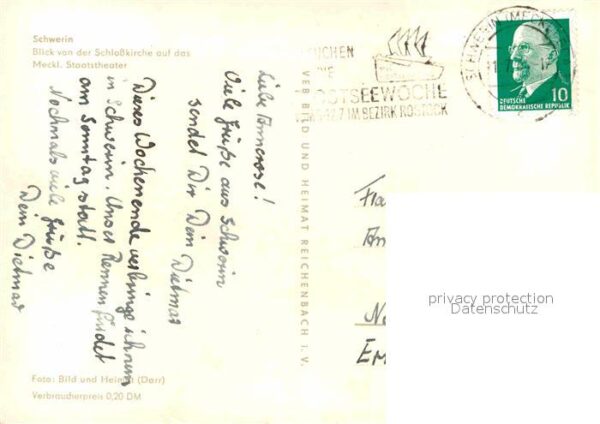 Schwerin
Blick von der Schloßkirche auf das
Meckl. Staatstheater
Liebe Annerose!
Viele Grüße aus Schwerin
sendet Dir Dein Dietmar
Dieses Wochenende verbringe ich nun
in Schwerin. Unser Rennen findet
am Sonntag statt.
Nochmals viele Grüße
Dein Dietmar
Foto: Bild und Heimat (Darr)
Verbraucherpreis 0,20 DM
VEB BILD UND HEIMAT REICHENBACH i. V.
OSTSEEWOCHE
IM BEZIRK ROSTOCK
SCHWERIN (MECKL)
DEUTSCHE
DEMOKRATISCHE REPUBLIK
10
privacy protection
Datenschutz